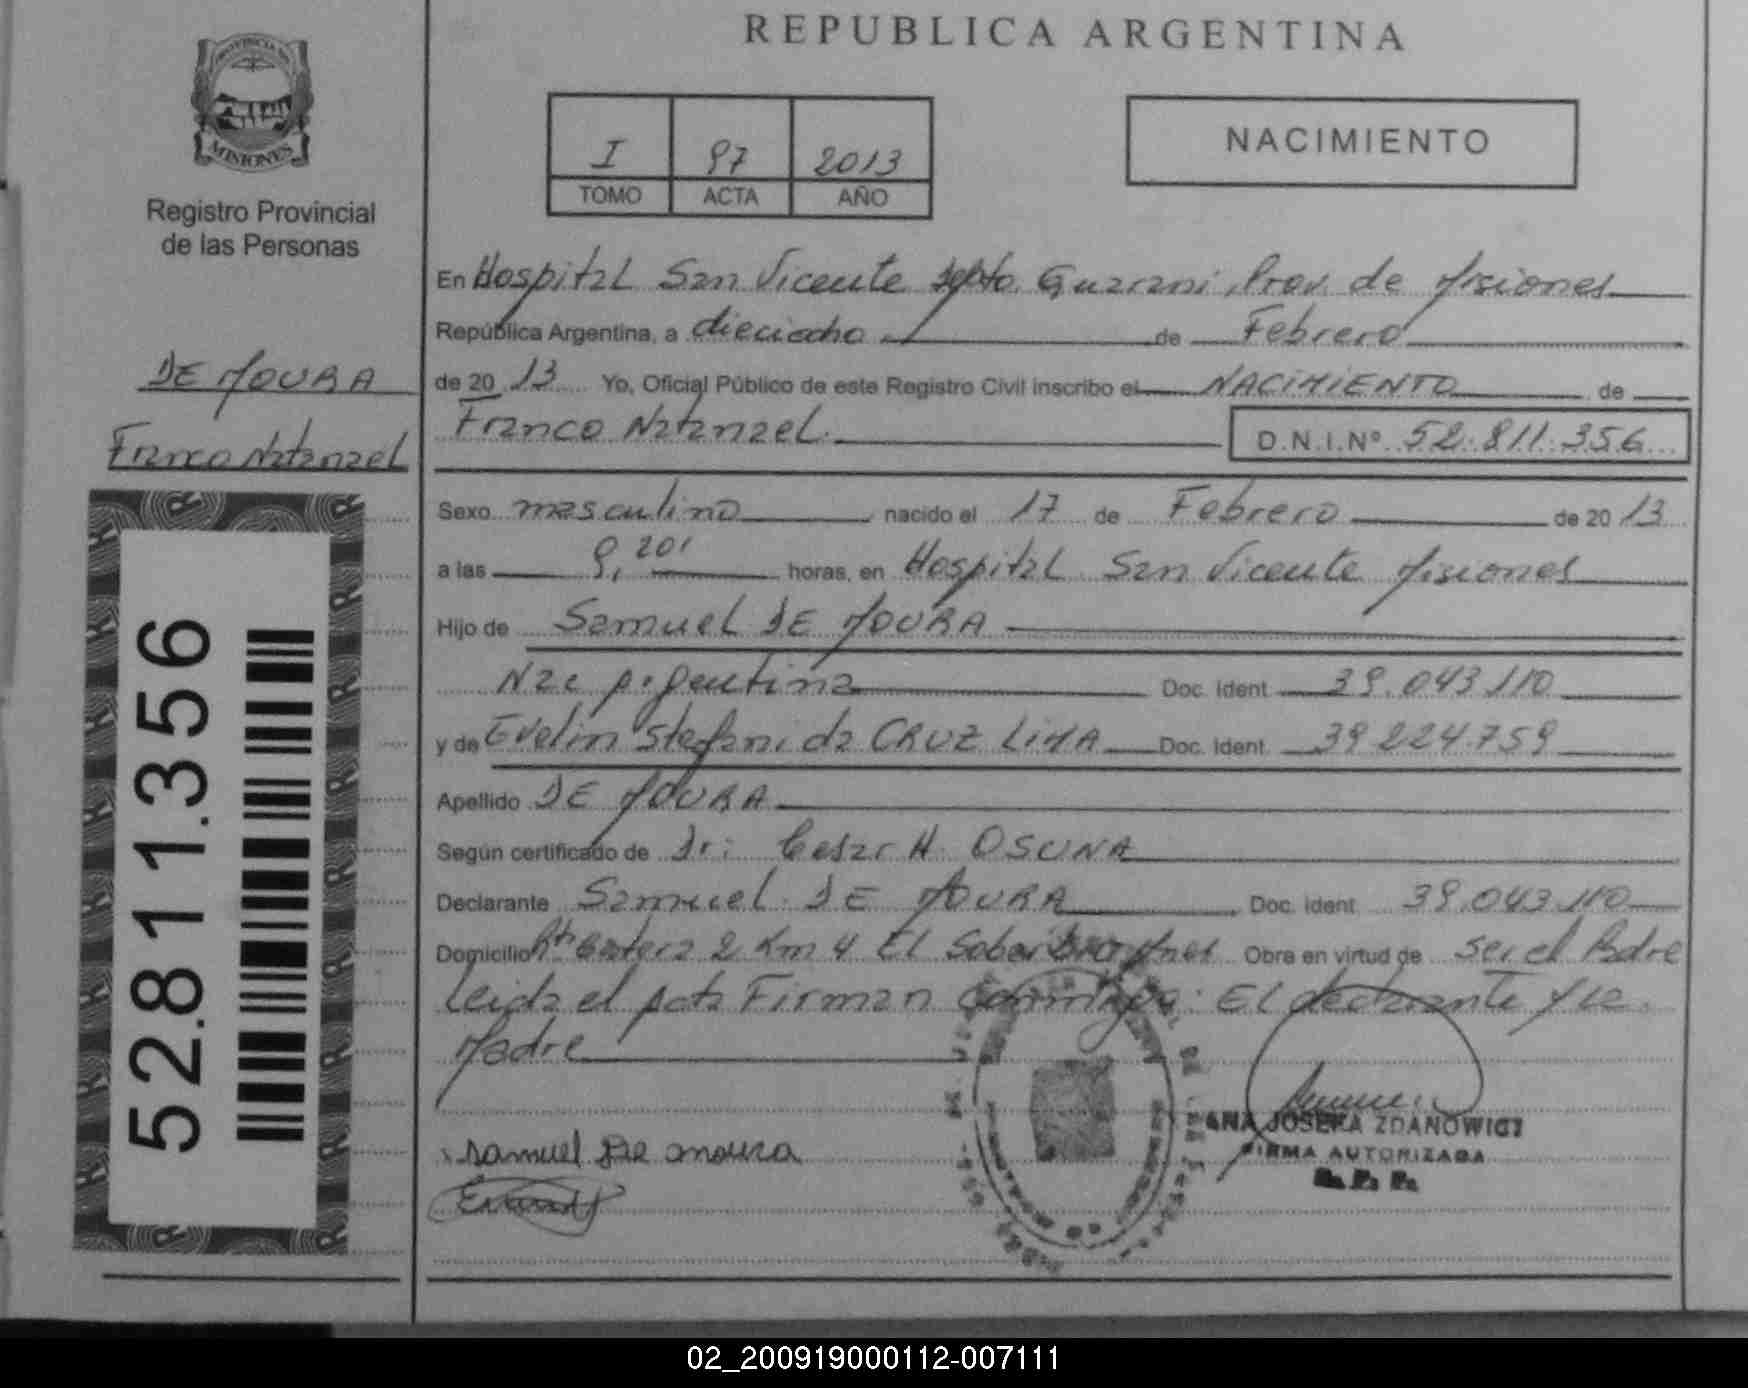 REPUBLICA ARGENTINA
PROVINCIA DE
MISIONES
Registro Provincial
de las Personas
I 97 2013
TOMO ACTA AÑO
NACIMIENTO
En Hospital San Vicente Depto. Guarani, Prov. de Misiones
República Argentina, a dieciocho de Febrero
de 20 13 Yo, Oficial Público de este Registro Civil inscribo el NACIMIENTO de
Franco Natanael. D.N.I.Nº 52.811.356
DE MOURA
Franco Natanael
52.811.356
Sexo masculino nacido el 17 de Febrero de 20 13
a las 9,20' horas, en Hospital San Vicente Misiones
Hijo de Samuel DE MOURA
Nac Argentina Doc. Ident. 39.043.110
y de Evelin Stefani da CRUZ LIMA Doc. Ident. 39224.759
Apellido DE MOURA
Según certificado de Dr: Cesar H. OSUNA
Declarante Samuel DE MOURA Doc. Ident. 39.043.110
Domicilio 2 Km 4 El Obra en virtud de ser el Padre
Leida el Acta Firman Conmigo: El declarante y la
Madre
Samuel De moura
ANA JOSEFA ZDANOWICZ
FIRMA AUTORIZADA
R. P. P.
02_200919000112-007111